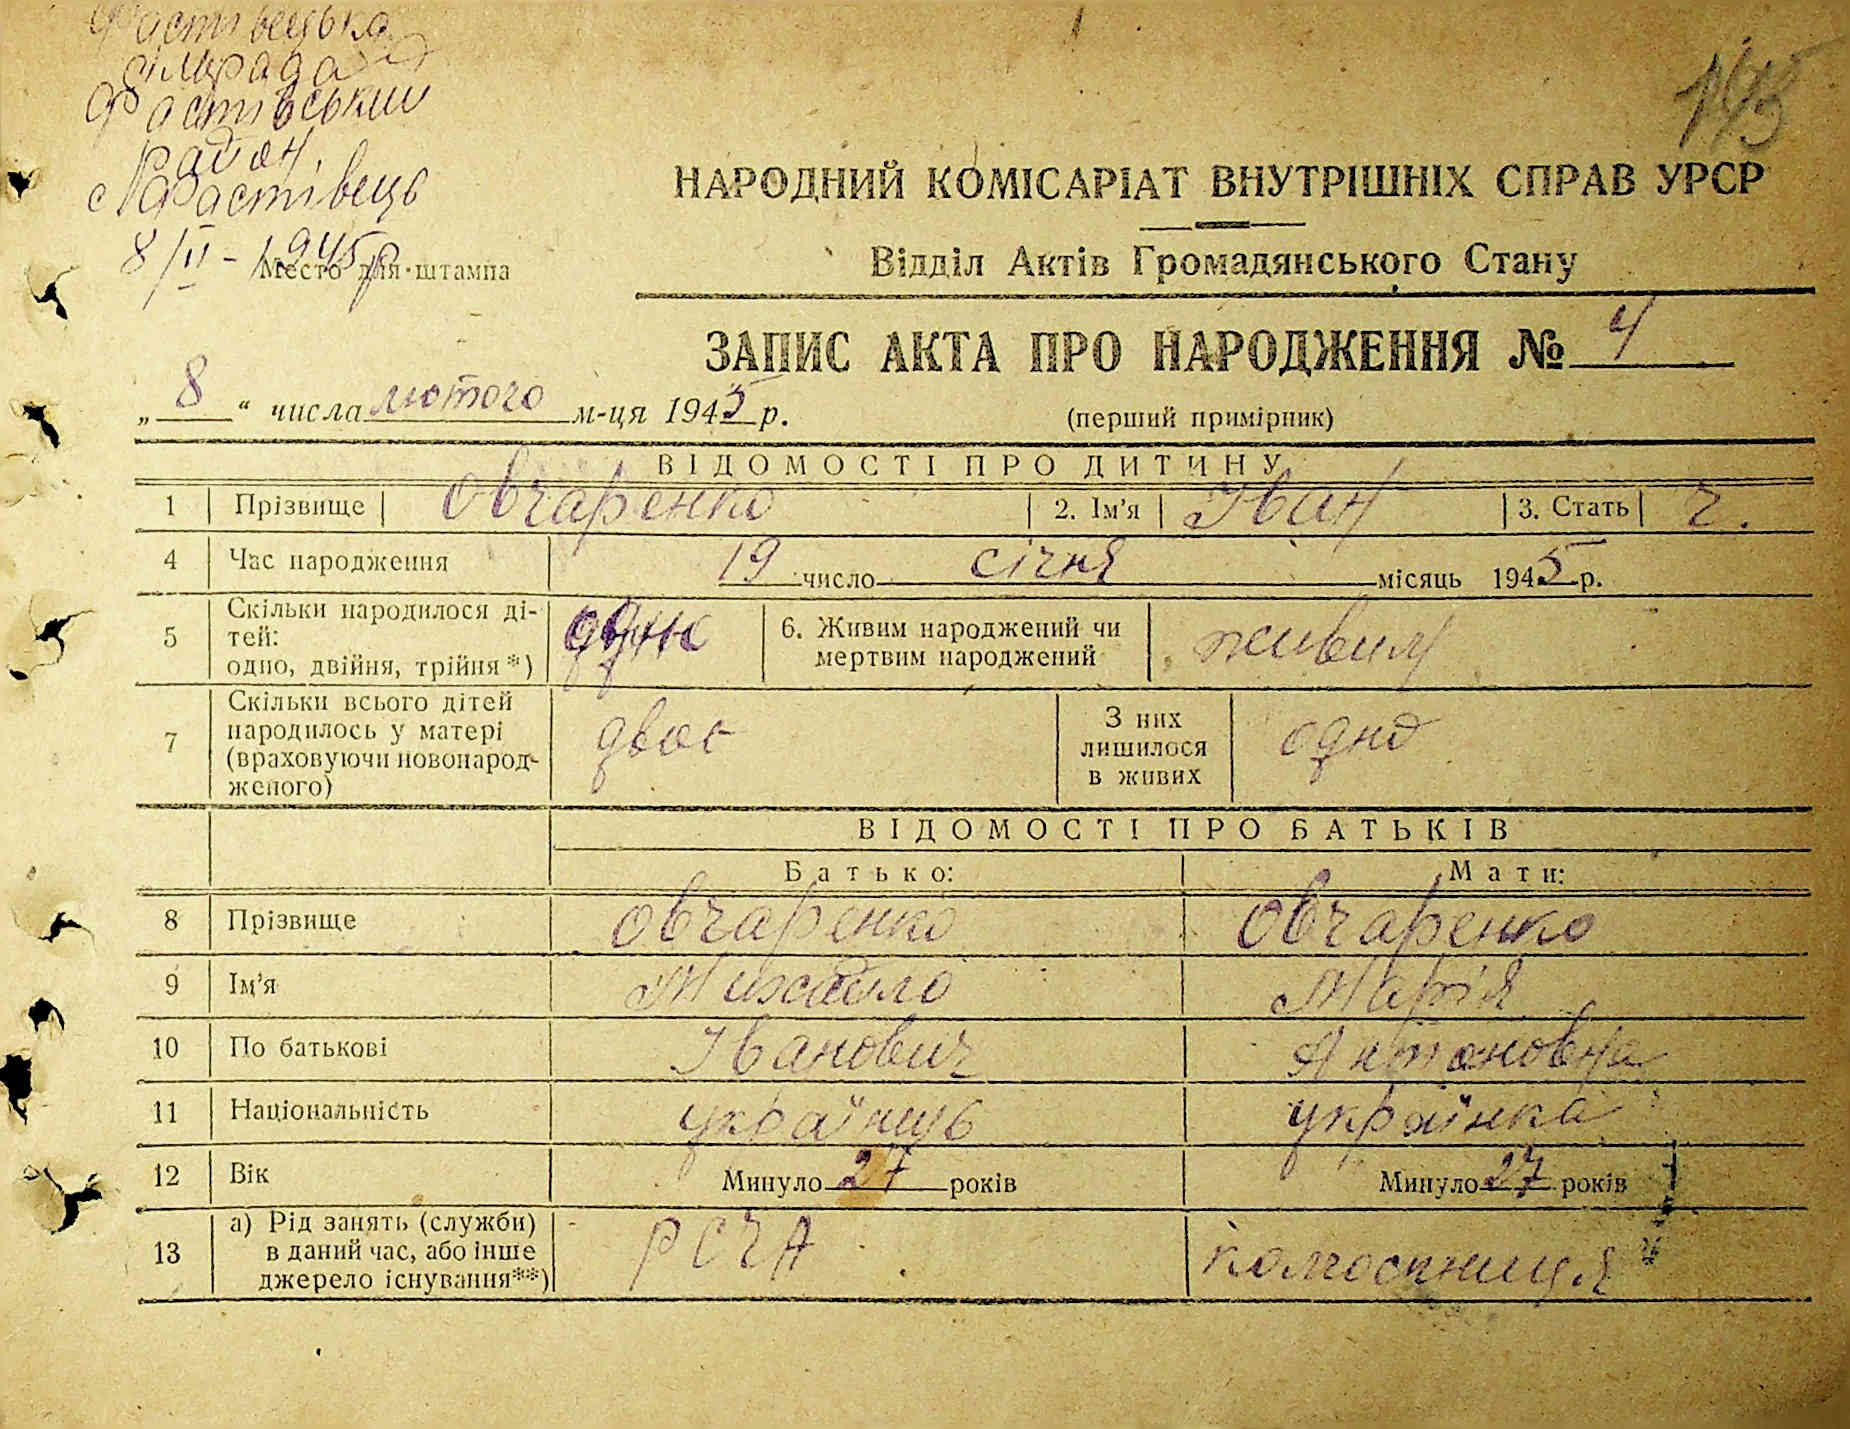 Фастівецька
сільрада
Фастівський
район.
с. Фастівець
8/II - 1945 р
Место для штампа
145
НАРОДНИЙ КОМІСАРІАТ ВНУТРІШНІХ СПРАВ УРСР
Відділ Актів Громадянського Стану
ЗАПИС АКТА ПРО НАРОДЖЕННЯ № 4
„8“ числа лютого м-ця 1945 р. (перший примірник)
ВІДОМОСТІ ПРО ДИТИНУ
1 Прізвище Овчаренко 2. Ім'я Іван 3. Стать ч.
4 Час народження 19 число січня місяць 1945 р.
5 Скільки народилося ді-
тей:
одно, двійня, трійня*) одне 6. Живим народжений чи
мертвим народжений живим
7 Скільки всього дітей
народилось у матері
(враховуючи новонарод-
женого) двоє З них
лишилося
в живих одно
ВІДОМОСТІ ПРО БАТЬКІВ
Батько: Мати:
8 Прізвище Овчаренко Овчаренко
9 Ім'я Михайло Марія
10 По батькові Іванович Антоновна
11 Національність українець українка
12 Вік Минуло 27 років Минуло 27 років
13 а) Рід занять (служби)
в даний час, або інше
джерело існування**) РСЧА колгоспниця